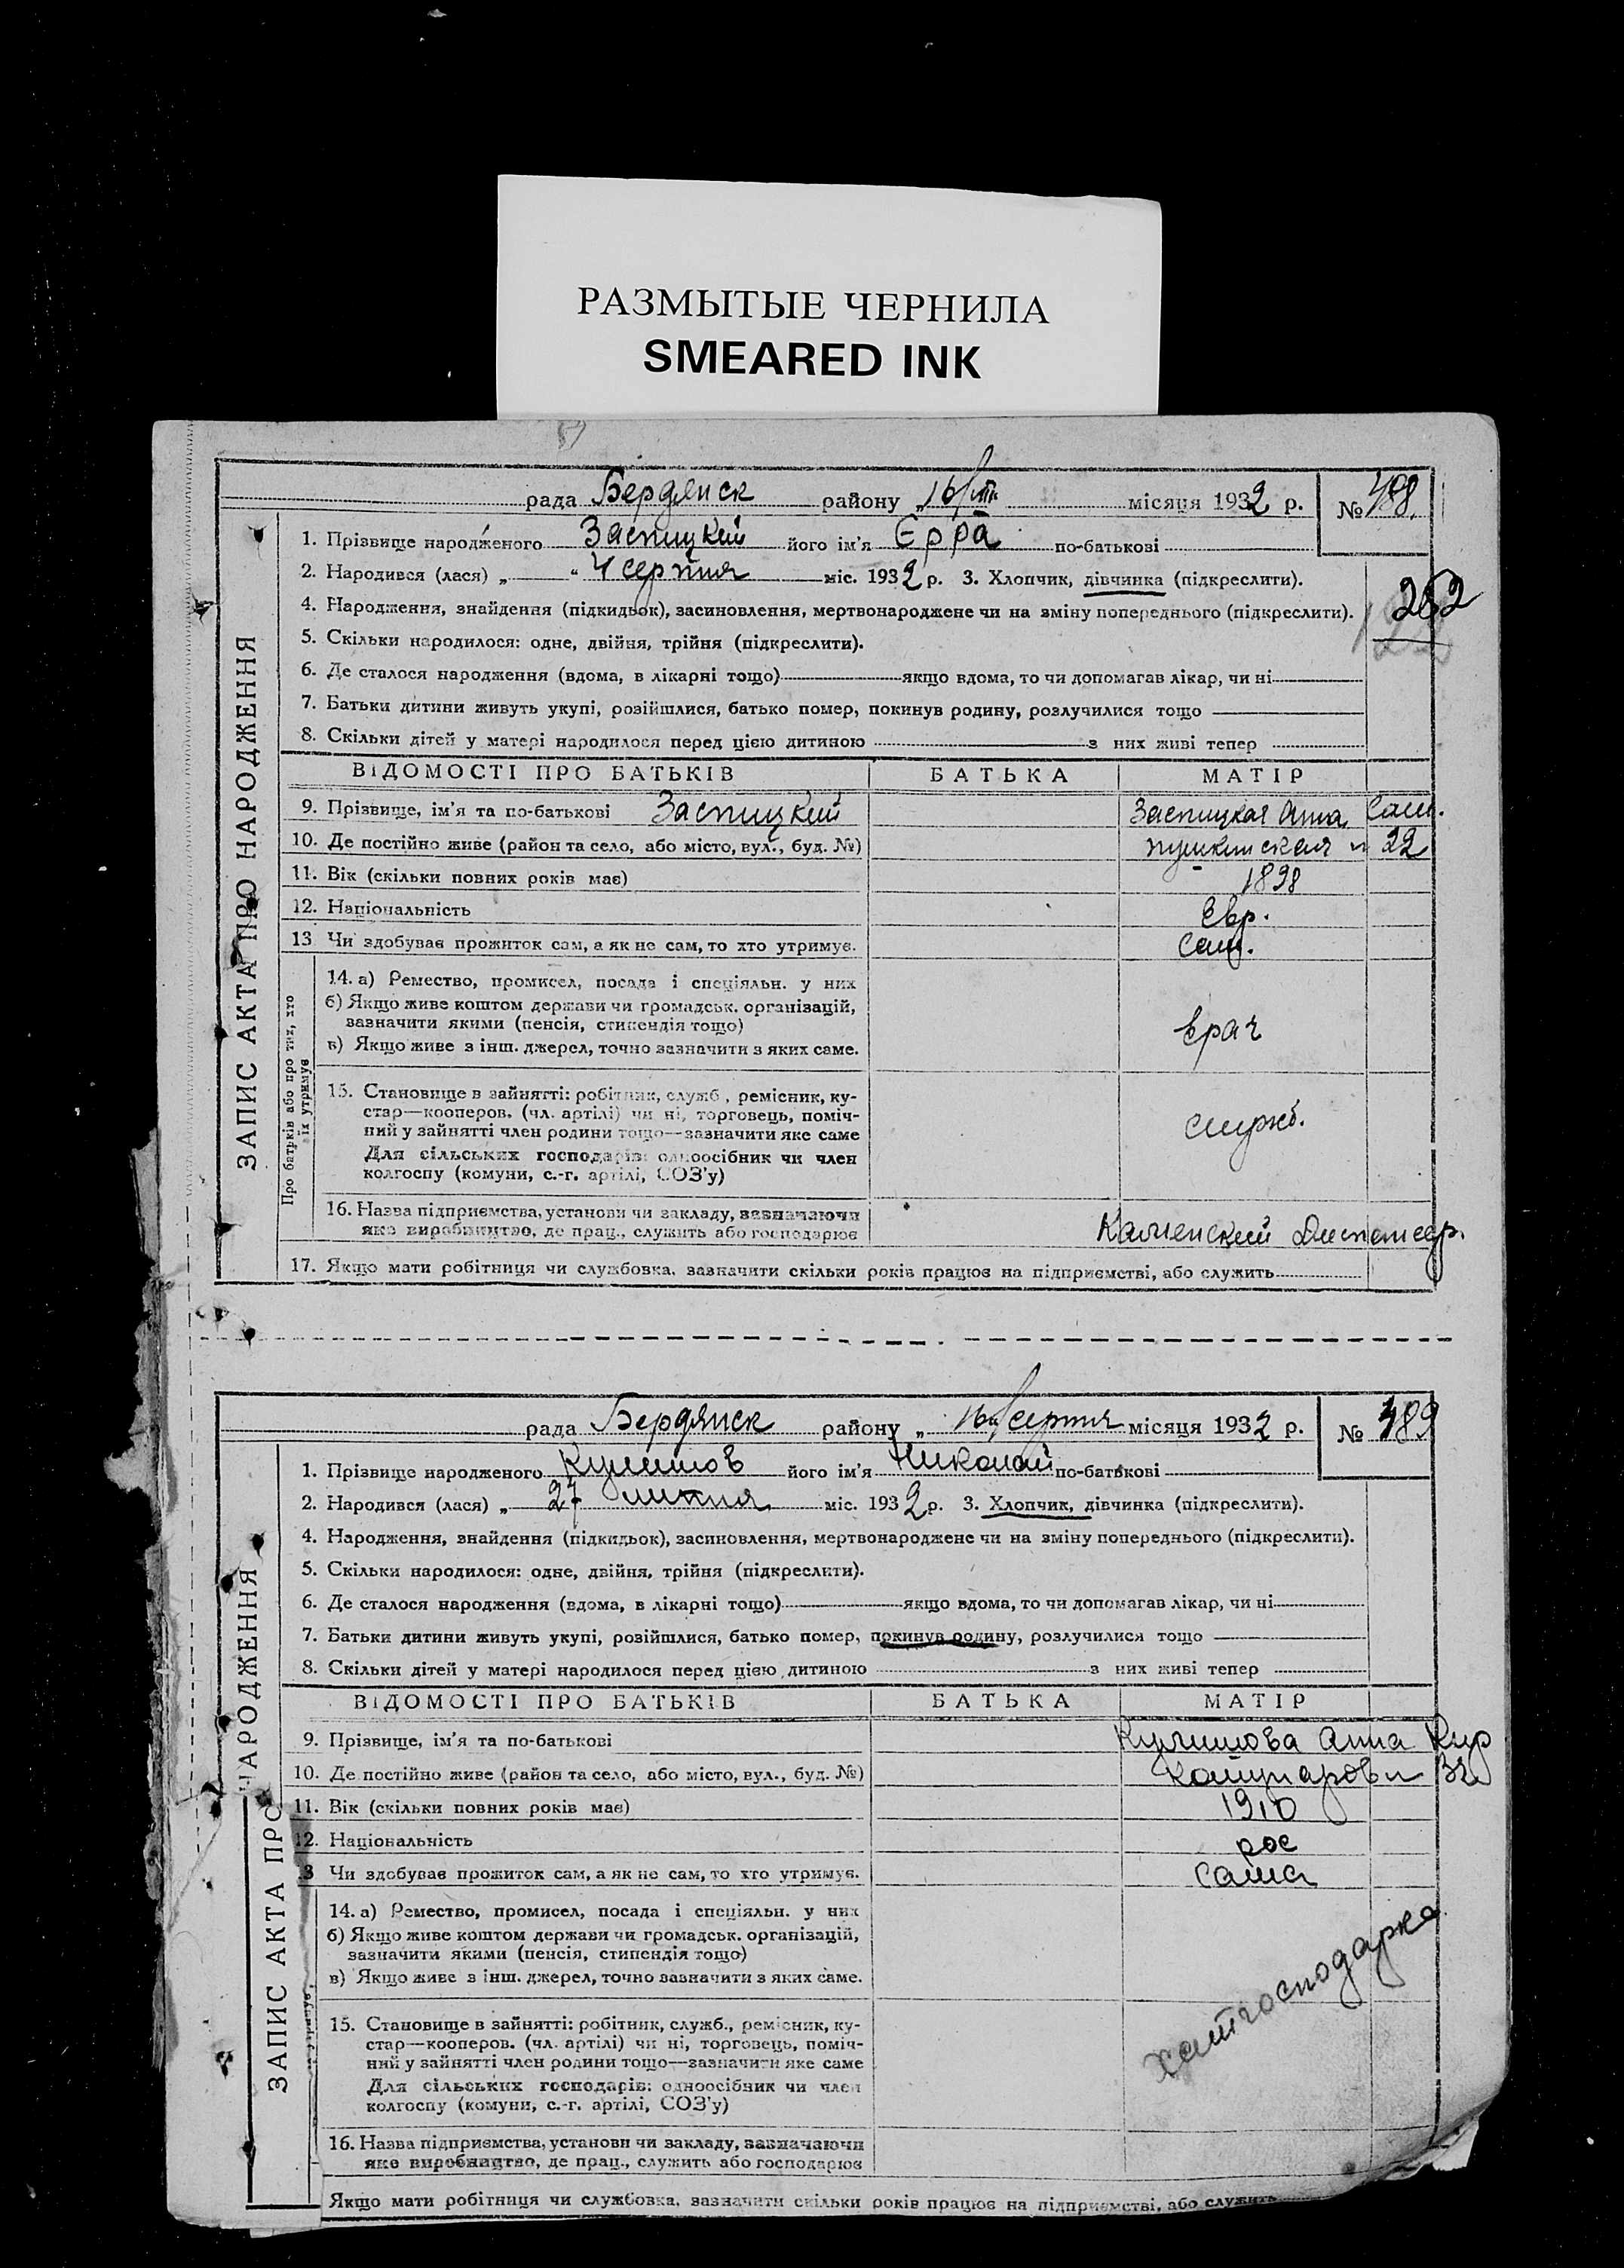 РАЗМЫТЫЕ ЧЕРНИЛА
SMEARED INK
рада Бердянск району „16/VIII місяця 1932 р. № 488.
1. Прізвище народженого Заспицкий його ім'я Єрра по-батькові
2. Народився (лася) „ " 4 серпня міс. 1932 р. 3. Хлопчик, дівчинка (підкреслити).
4. Народження, знайдення (підкидьок), засиновлення, мертвонароджене чи на зміну попереднього (підкреслити). 252
5. Скільки народилося: одне, двійня, трійня (підкреслити).
6. Де сталося народження (вдома, в лікарні тощо) якщо вдома, то чи допомагав лікар, чи ні
7. Батьки дитини живуть укупі, розійшлися, батько помер, покинув родину, розлучилися тощо
8. Скільки дітей у матері народилося перед цією дитиною з них живі тепер
ЗАПИС АКТА ПРО НАРОДЖЕННЯ
ВІДОМОСТІ ПРО БАТЬКІВ БАТЬКА МАТІР
9. Прізвище, ім'я та по-батькові Заспицкий Заспицкая Анна Сам.
10. Де постійно живе (район та село, або місто, вул., буд. №) пушкинская 22
11. Вік (скільки повних років має) 1898
12. Національність Евр.
13 Чи здобуває прожиток сам, а як не сам, то хто утримує. Сам.
Про батьків або про тих, хто їх утримує
14. а) Ремество, промисел, посада і спеціяльн. у них
б) Якщо живе коштом держави чи громадськ. організацій,
зазначити якими (пенсія, стипендія тощо)
в) Якщо живе з інш. джерел, точно зазначити з яких саме.
врач
15. Становище в зайнятті: робітник, служб., ремісник, ку-
стар—кооперов. (чл. артілі) чи ні, торговець, поміч-
ний у зайнятті член родини тощо—зазначити яке саме
Для сільських господарів: одноосібник чи член
колгоспу (комуни, с.-г. артілі, СОЗ'у)
служб.
16. Назва підприємства, установи чи закладу, зазначаючи
яке виробництво, де прац., служить або господарює
Диспансер.
17. Якщо мати робітниця чи службовка, зазначити скільки років працює на підприємстві, або служить
рада Бердянск району „ 16/серпня місяця 1932 р. № 489
1. Прізвище народженого Кулишов його ім'я Николай по-батькові
2. Народився (лася) „ 27 липня міс. 1932 р. 3. Хлопчик, дівчинка (підкреслити).
4. Народження, знайдення (підкидьок), засиновлення, мертвонароджене чи на зміну попереднього (підкреслити).
5. Скільки народилося: одне, двійня, трійня (підкреслити).
6. Де сталося народження (вдома, в лікарні тощо) якщо вдома, то чи допомагав лікар, чи ні
7. Батьки дитини живуть укупі, розійшлися, батько помер, покинув родину, розлучилися тощо
8. Скільки дітей у матері народилося перед цією дитиною з них живі тепер
ЗАПИС АКТА ПРО НАРОДЖЕННЯ
ВІДОМОСТІ ПРО БАТЬКІВ БАТЬКА МАТІР
9. Прізвище, ім'я та по-батькові Кулишова Анна Кир
10. Де постійно живе (район та село, або місто, вул., буд. №)
11. Вік (скільки повних років має) 1910
12. Національність рос
13 Чи здобуває прожиток сам, а як не сам, то хто утримує. Сама
14. а) Ремество, промисел, посада і спеціяльн. у них
б) Якщо живе коштом держави чи громадськ. організацій,
зазначити якими (пенсія, стипендія тощо)
в) Якщо живе з інш. джерел, точно зазначити з яких саме.
хатгосподарка
15. Становище в зайнятті: робітник, служб., ремісник, ку-
стар—кооперов. (чл. артілі) чи ні, торговець, поміч-
ний у зайнятті член родини тощо—зазначити яке саме
Для сільських господарів: одноосібник чи член
колгоспу (комуни, с.-г. артілі, СОЗ'у)
16. Назва підприємства, установи чи закладу, зазначаючи
яке виробництво, де прац., служить або господарює
Якщо мати робітниця чи службовка, зазначити скільки років працює на підприємстві, або служить